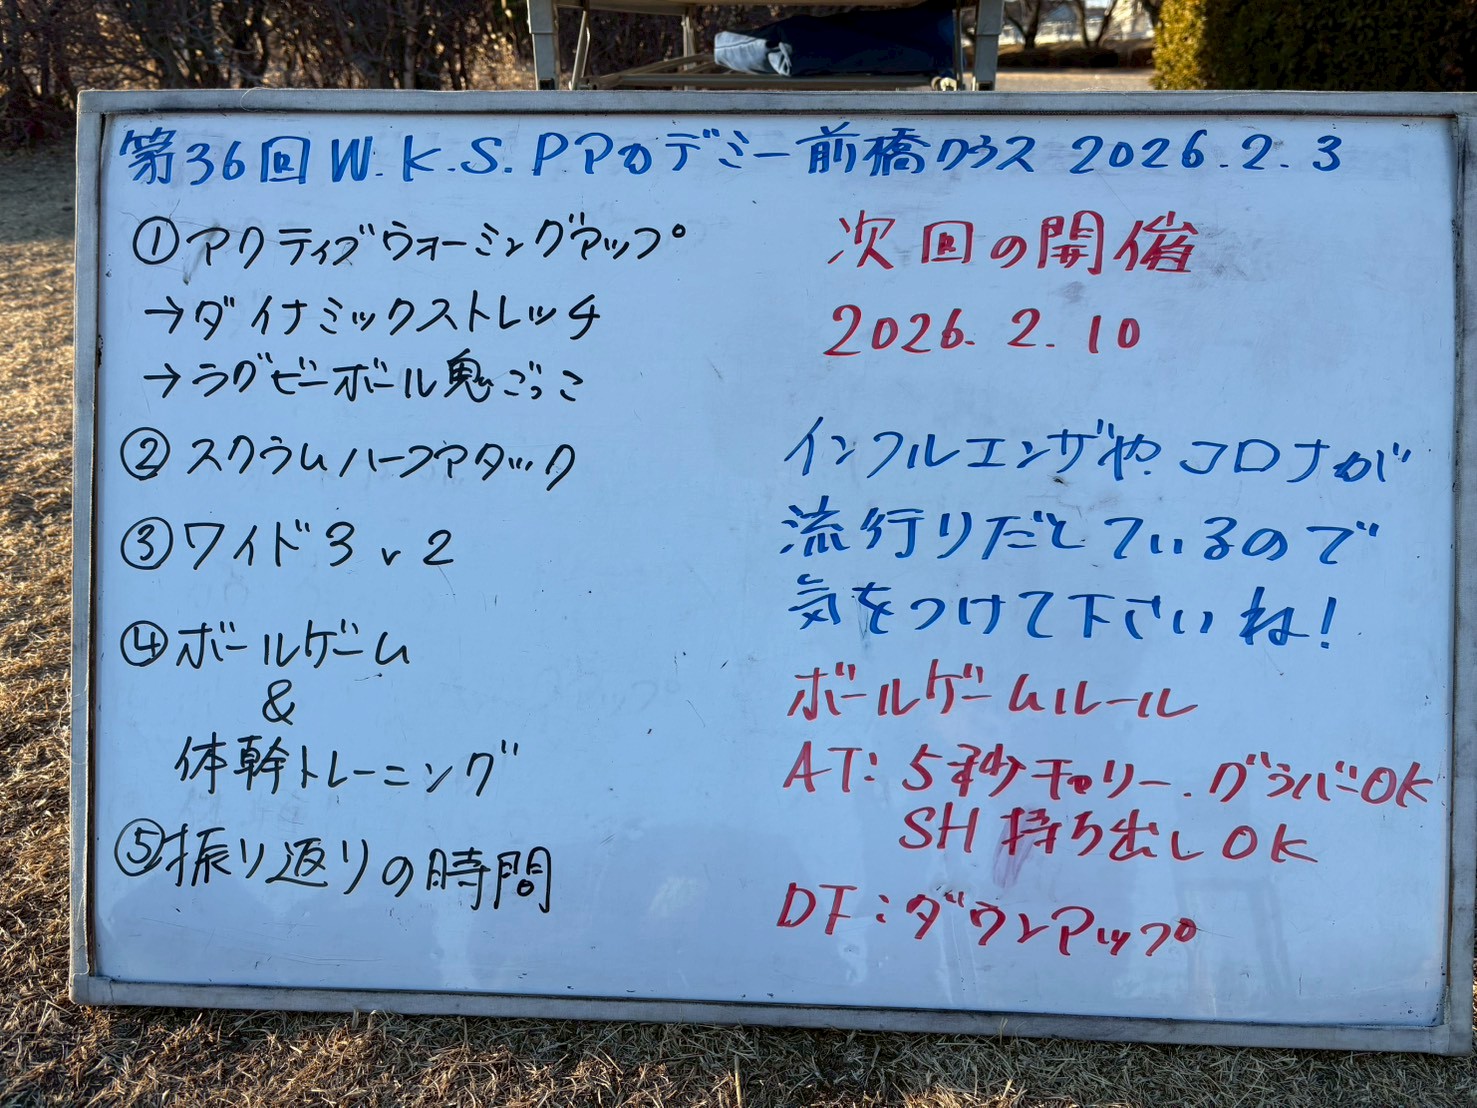 第36回 W.K.S.Pアカデミー前橋クラス 2026.2.3
①アクティブウォーミングアップ
→ダイナミックストレッチ
→ラグビーボール鬼ごっこ
②スクラムハーフアタック
③ワイド3v2
④ボールゲーム
&
体幹トレーニング
⑤振り返りの時間
次回の開催
2026.2.10
インフルエンザや、コロナが
流行りだとているので
気をつけて下さいね!
ボールゲームルール
AT:5秒キャリー.グラバーOK
SH持ち出しOK
DF:ダウンアップ